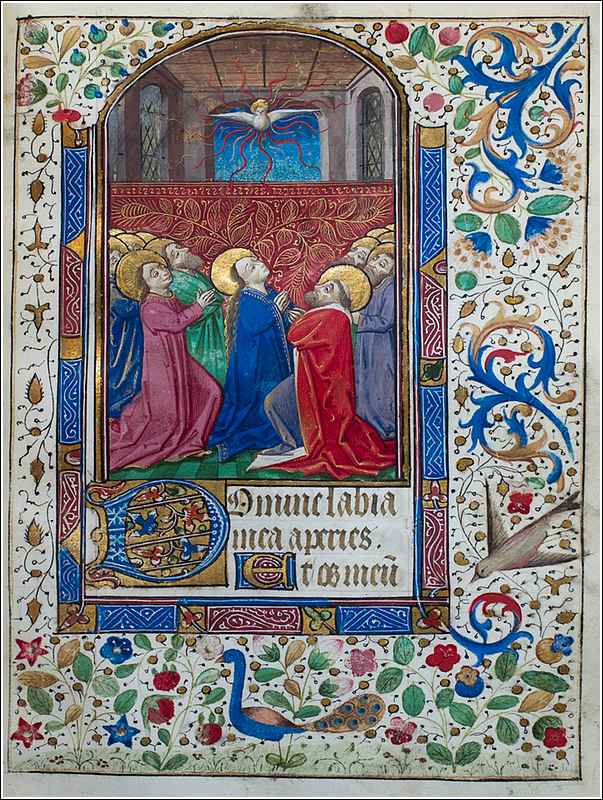 Domine labia
mea aperies
Et os meū